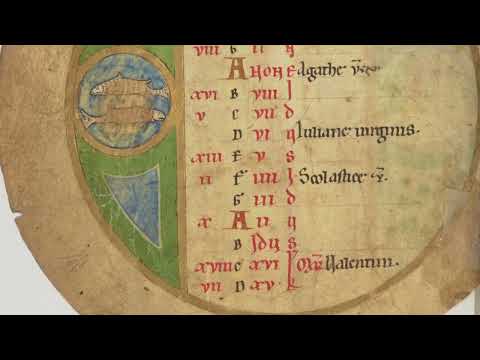 viii G ii y
A NON E Agathe
xvi B viii I
v C vii d
D vi y Iuliane uirginis.
xiii E v s
ii F iiii I Scolastice
G iii d
x A ii y
B Idus
xviii C xvi Valentini.
vii D xv